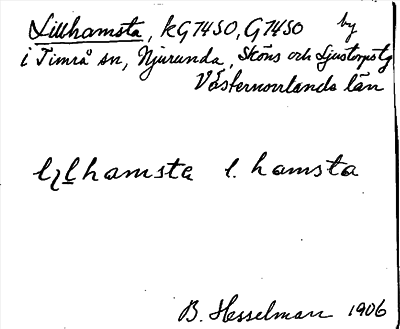 Lillhamsta, kG74SO, G74SO by
i Timrå sn, Njurunda, Sköns och Ljustorps tg
Västernorrlands län
hamsta l. hamsta
B. Hesselman 1906